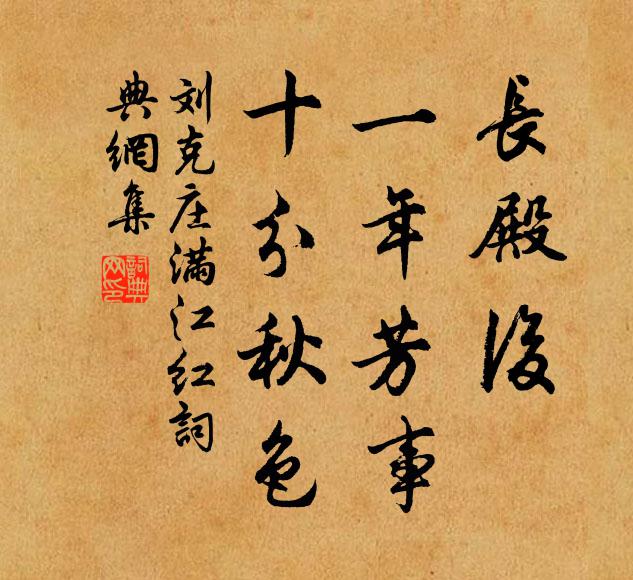 長殿後
一年芳事
十分秋色
刘克庄满江红詞
典網集
詞典网印